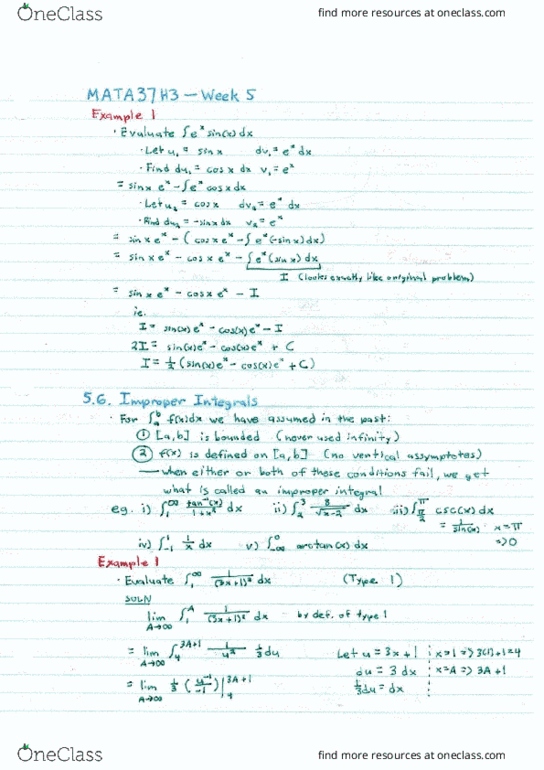 OneClass find more resources at oneclass.com
MATA37H3 — Week 5
Example 1
· Evaluate ∫eˣ sin(x) dx
· Let u₁ = sin x dv₁ = eˣ dx
· Find du₁ = cos x dx v₁ = eˣ
= sin x eˣ - ∫eˣ cos x dx
· Let u₂ = cos x dv₂ = eˣ dx
· Find du₂ = -sin x dx v₂ = eˣ
= sin x eˣ - (cos x eˣ - ∫eˣ(-sin x) dx)
= sin x eˣ - cos x eˣ - ∫eˣ(sin x) dx
I (looks exactly like original problem)
= sin x eˣ - cos x eˣ - I
ie.
I = sin(x) eˣ - cos(x) eˣ - I
2I = sin(x) eˣ - cos(x) eˣ + C
I = ½ (sin(x) eˣ - cos(x) eˣ + C)
5.6. Improper Integrals
· For ∫ₐᵇ f(x) dx we have assumed in the past:
① [a,b] is bounded (never used infinity)
② f(x) is defined on [a,b] (no vertical assymptotes)
— when either or both of these conditions fail, we get
what is called an improper integral
eg. i) ∫₁^∞ tan⁻¹(x)/(1+x²) dx ii) ∫₂³ 8/√(x-2) dx iii) ∫_{π/2}^π csc(x) dx
= 1/sin(x) x=π
=> 0
iv) ∫₋₁¹ 1/x dx v) ∫₋∞^∞ arctan(x) dx
Example 1
· Evaluate ∫₁^∞ 1/(3x+1)² dx (Type 1)
SOLN
lim A→∞ ∫₁^A 1/(3x+1)² dx by def. of type 1
= lim A→∞ ∫₄^{3A+1} 1/u² ⅓ du Let u = 3x+1 x=1 => 3(1)+1=4
du = 3 dx x=A => 3A+1
= lim A→∞ ⅓ (u⁻¹/-1) |₄^{3A+1} ⅓ du = dx
OneClass find more resources at oneclass.com